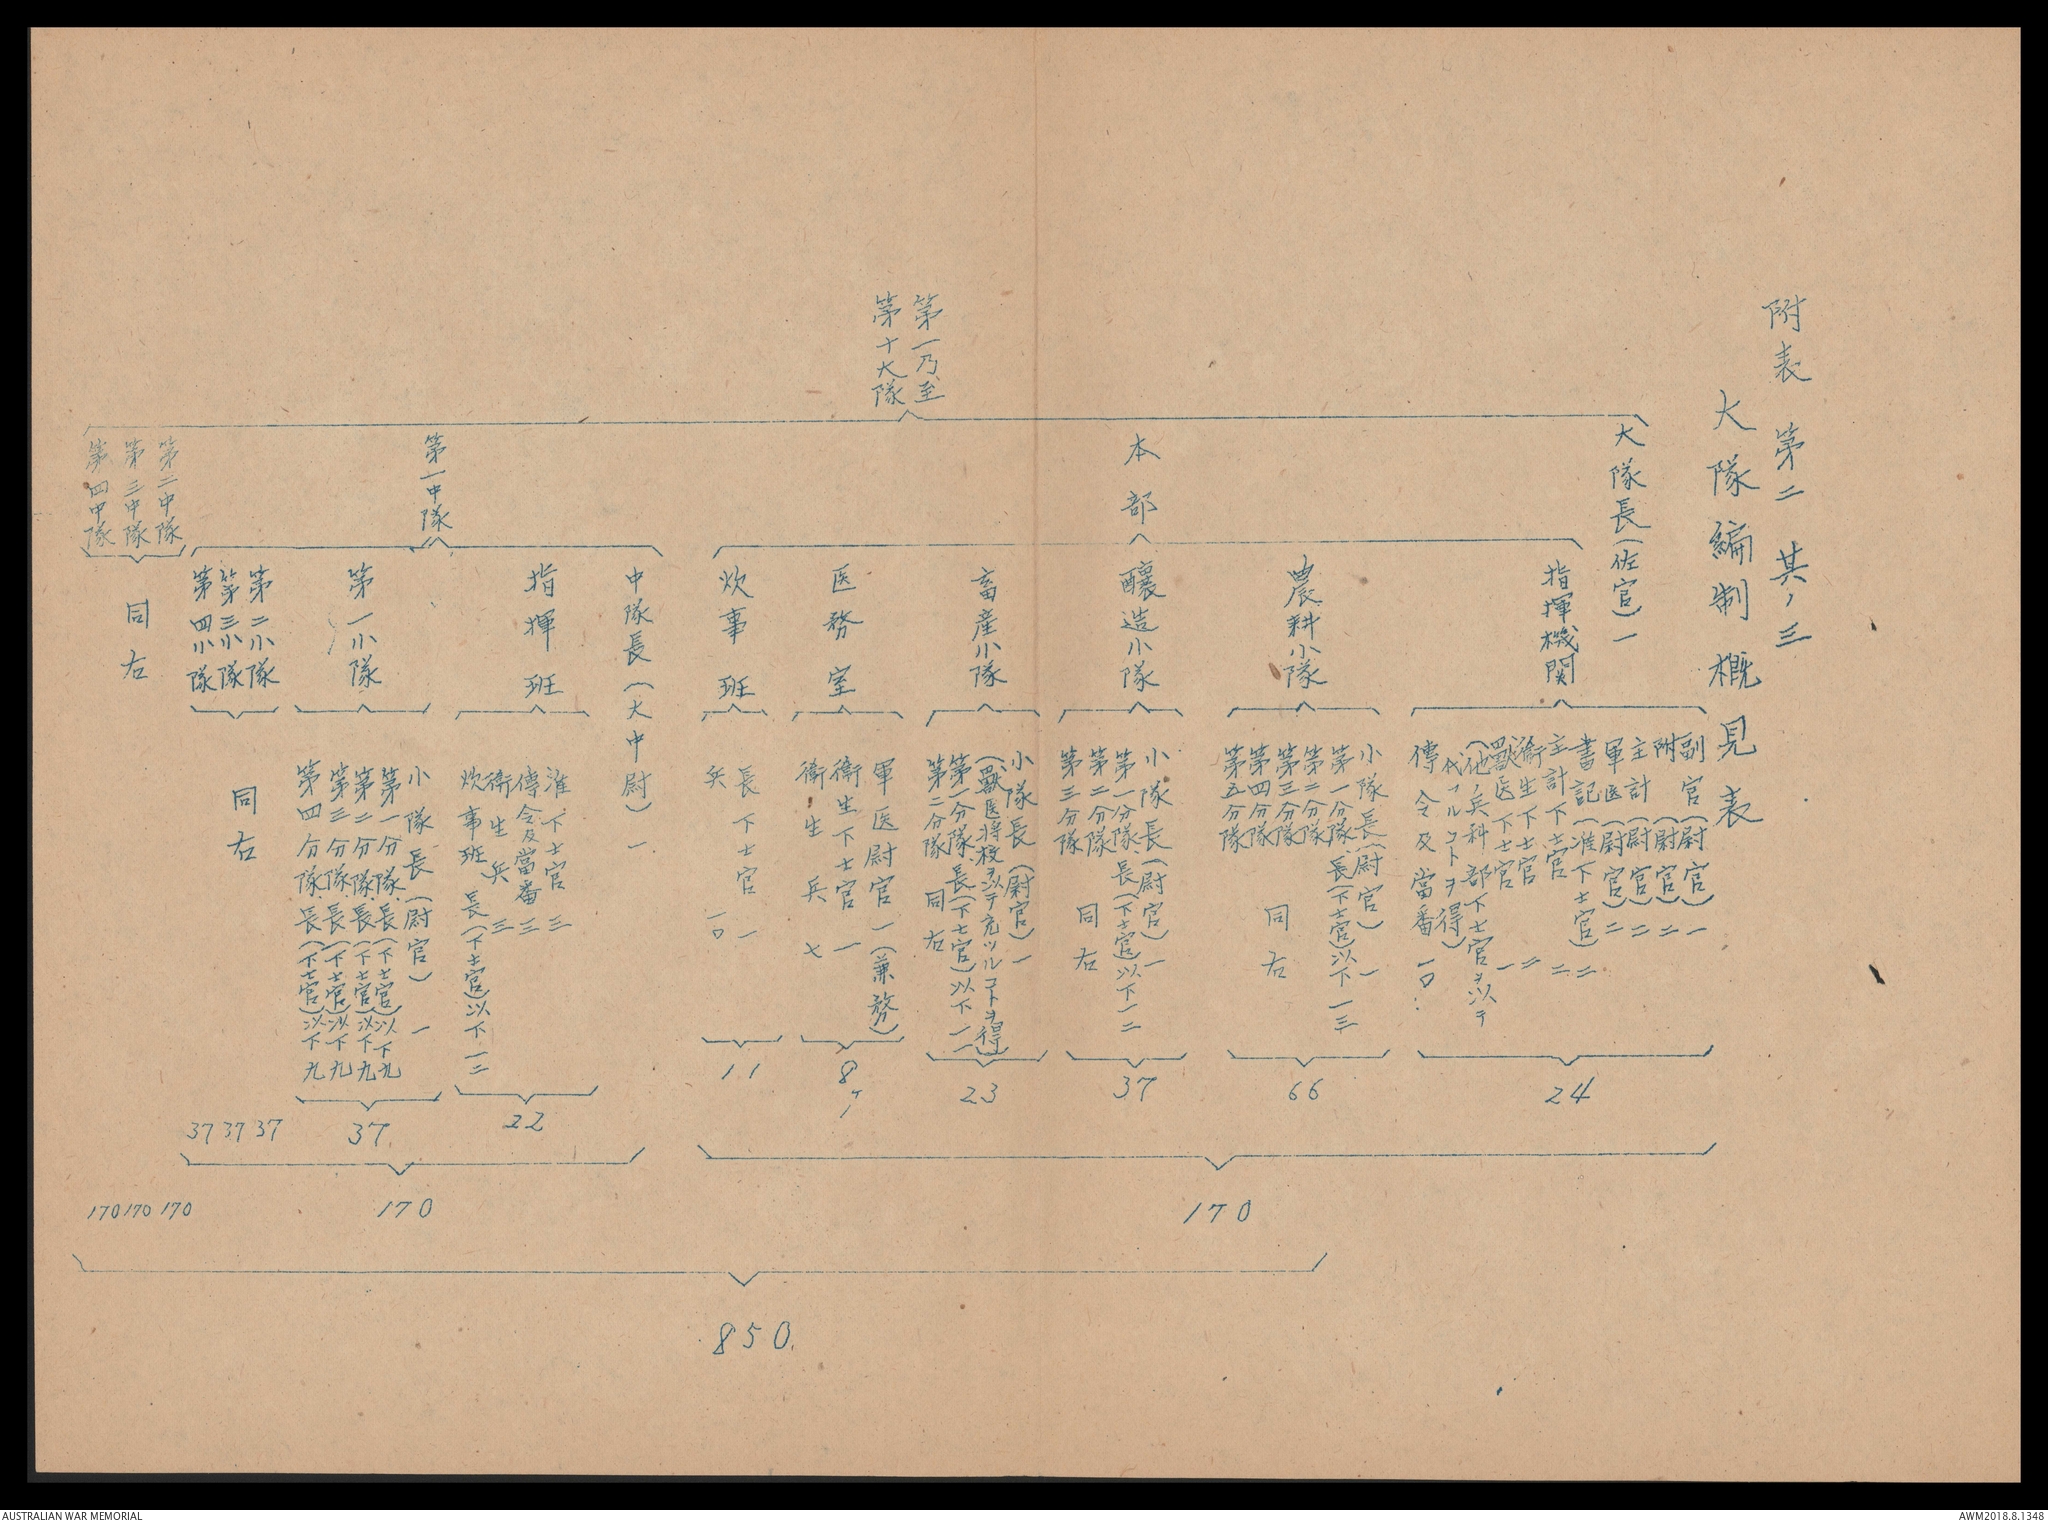 附表 第二 其ノ三
大隊編制概見表
第一乃至
第十大隊
大隊長(佐官)一
本部
指揮機関
副官(尉官)一
附(尉官)二
主計(尉官)二
軍医(尉官)二
書記(准下士官)二
主計下士官 二
衛生下士官 二
獣医下士官 一
(他ノ兵科部下士官ヲ以テ
代フルコトヲ得)
傳令及當番 一〇
24
農耕小隊
小隊長(尉官)一
第一分隊 長(下士官)以下一三
第二分隊
第三分隊
第四分隊
第五分隊
同右
66
醸造小隊
小隊長(尉官)一
第一分隊 長(下士官)以下一二
第二分隊
第三分隊
同右
37
畜産小隊
小隊長(尉官)一
(獣医将校ヲ以テ充ツルコトヲ得)
第一分隊 長(下士官)以下一一
第二分隊 同右
23
医務室
軍医尉官一(兼務)
衛生下士官 一
衛生兵 七
8
炊事班
長 下士官 一
兵 一〇
11
170
第一中隊
中隊長(大中尉)一
指揮班
准、下士官 三
傳令及當番 三
衛生兵 三
炊事班 長(下士官)以下一二
22
第一小隊
小隊長(尉官)一
第一分隊 長(下士官)以下九
第二分隊 長(下士官)以下九
第三分隊 長(下士官)以下九
第四分隊 長(下士官)以下九
37
第二小隊
第三小隊
第四小隊
同右
37 37 37
170
第二中隊
第三中隊
第四中隊
同右
170 170 170
850.
AUSTRALIAN WAR MEMORIAL
AWM2018.8.1348